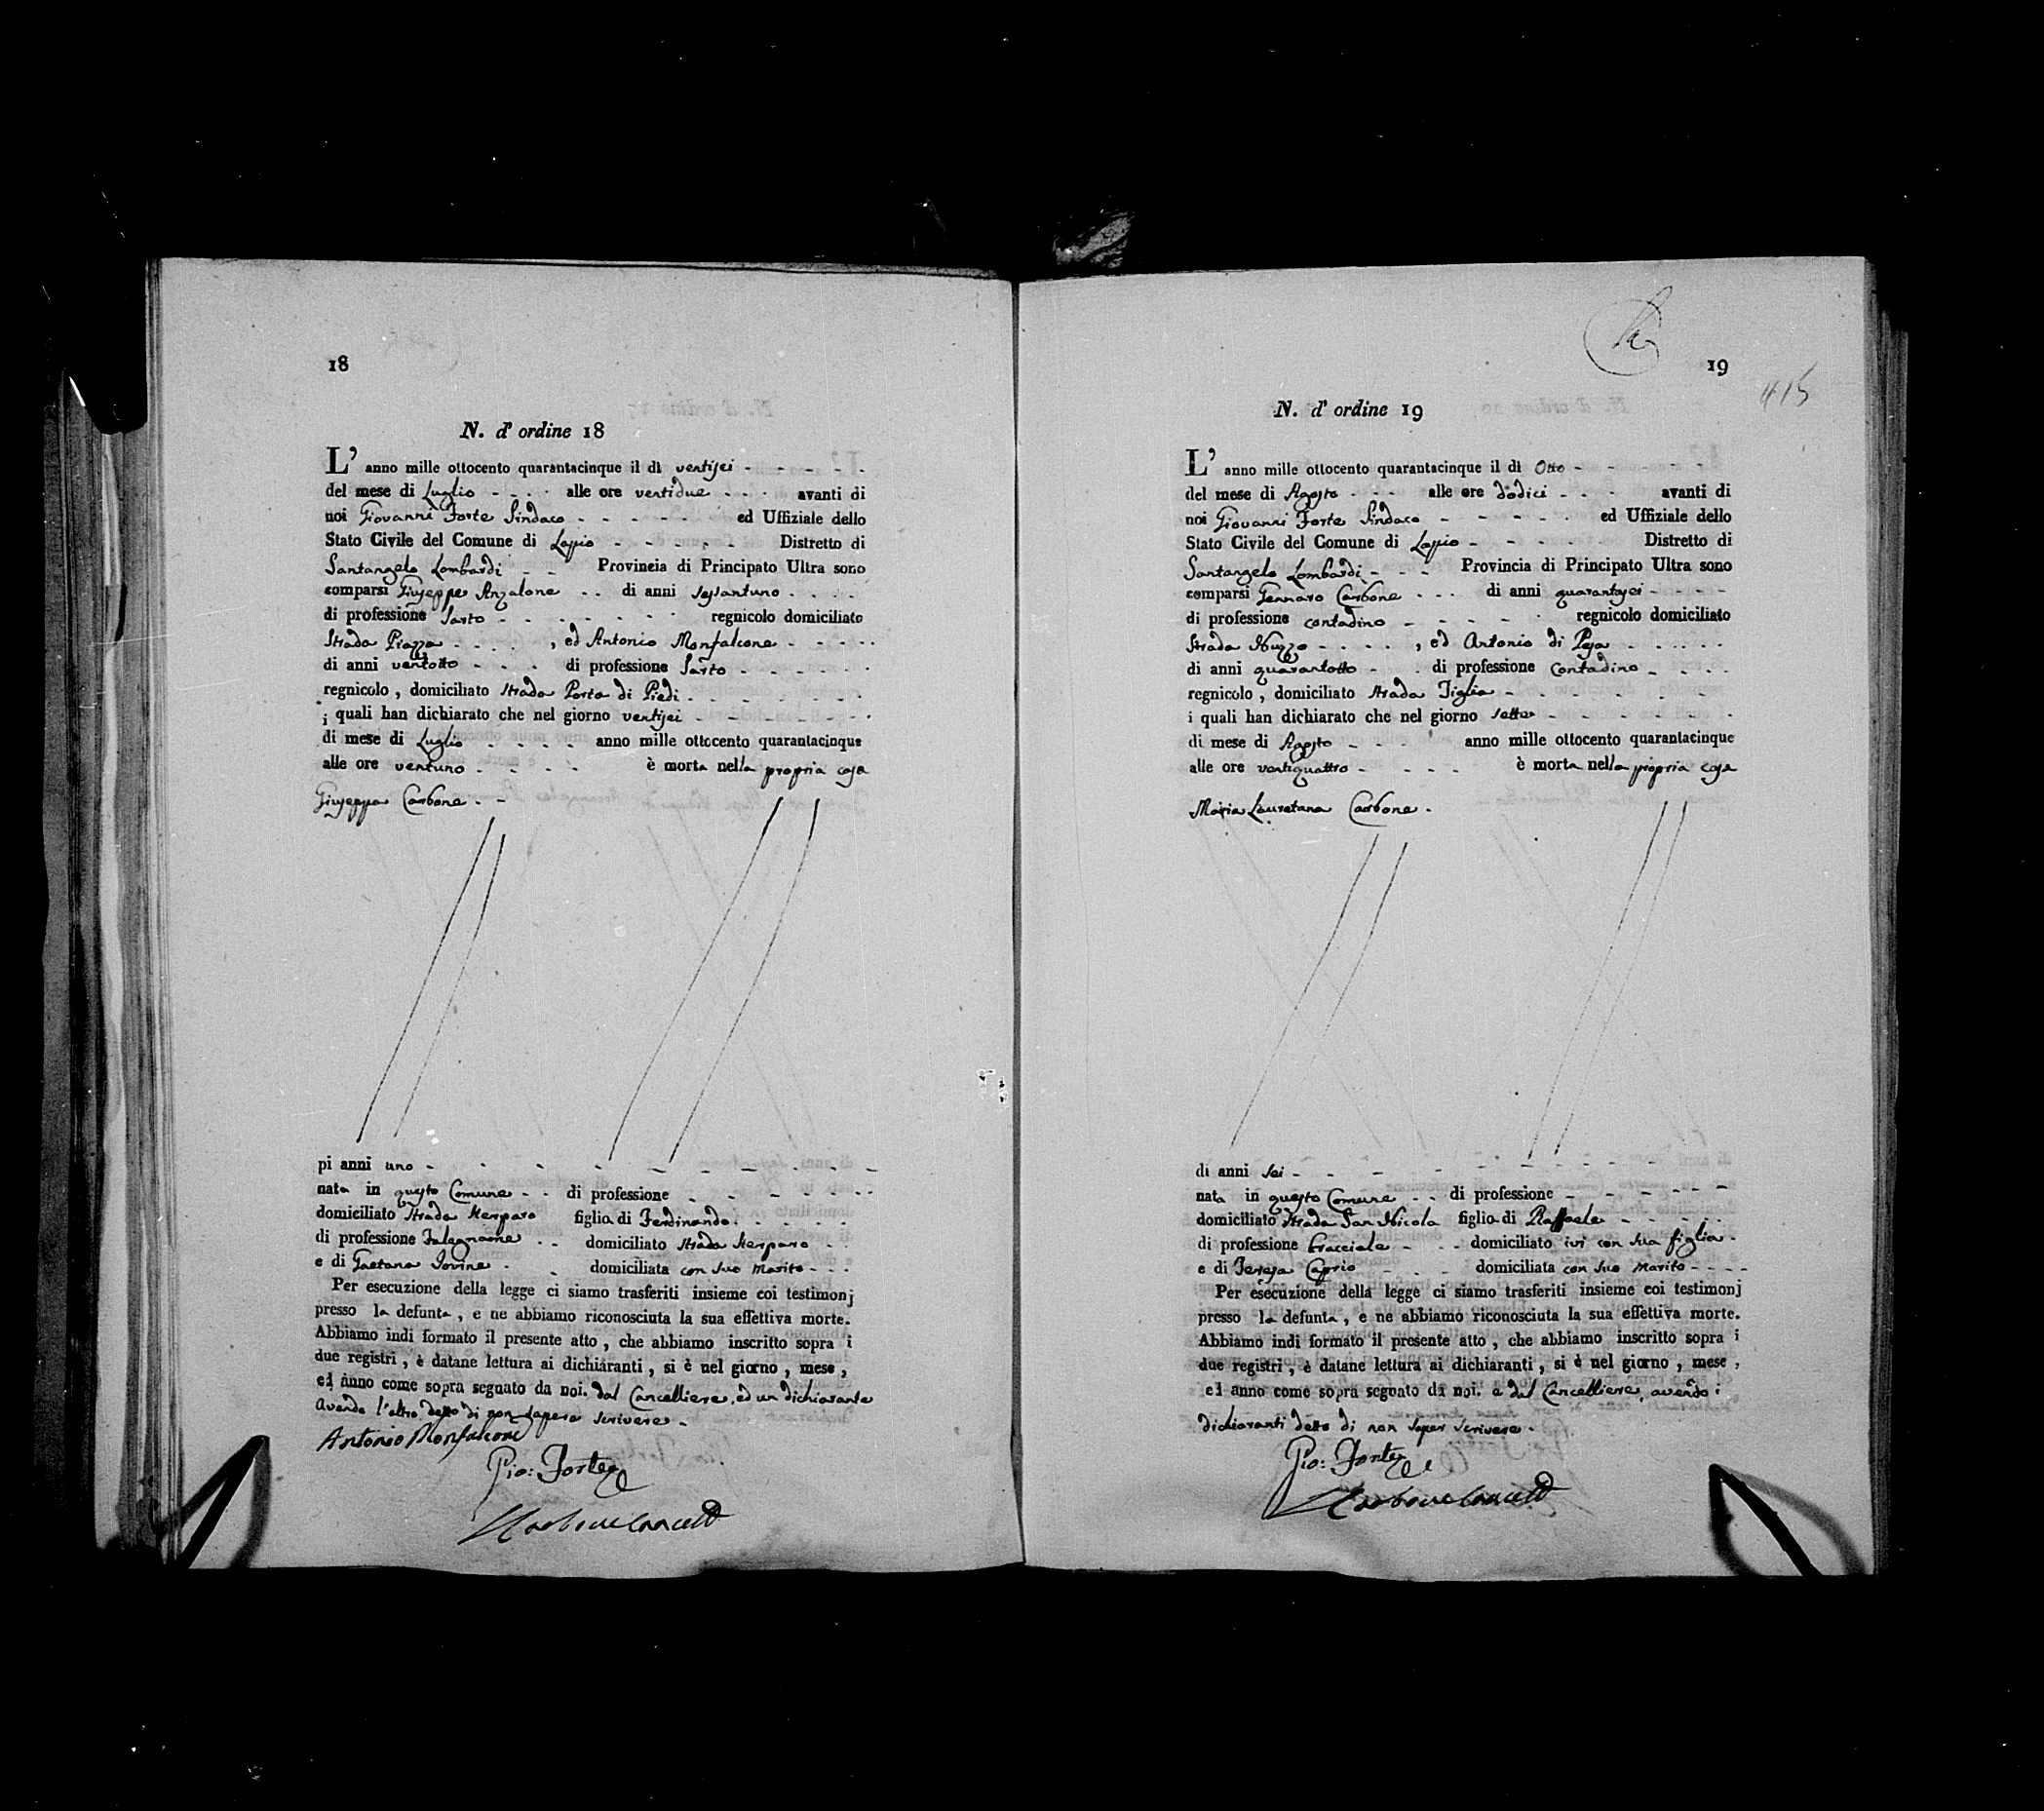 18
N. d' ordine 18
L' anno mille ottocento quarantacinque il dì ventisei - - - - -
del mese di Luglio - - - - alle ore ventidue - - - avanti di
noi Giovanni Forte Sindaco - - - - - ed Uffiziale dello
Stato Civile del Comune di Lapio - - - - - Distretto di
Santangelo Lombardi - - Provincia di Principato Ultra sono
comparsi Giuseppe Anzalone - - di anni sessantuno - - - -
di professione Sarto - - - - - - - regnicolo domiciliato
Strada Piazza - - - - , ed Antonio Monfalcone - - - - -
di anni ventotto - - - - di professione Sarto - - - - - -
regnicolo , domiciliato Strada Porta di Piedi - - - - - - -
i quali han dichiarato che nel giorno ventisei - - - - - - -
di mese di Luglio - - - - anno mille ottocento quarantacinque
alle ore ventuno - - - - è morta nella propria casa
Giuseppa Carbone - -
pi anni uno - - - - - - - - - -
nata in questo Comune - - di professione - - - - - - -
domiciliato Strada figlia di Ferdinando - - - - -
di professione Falegname - - domiciliato Strada - -
e di Gaetana Iovine - - domiciliata con suo Marito - - -
Per esecuzione della legge ci siamo trasferiti insieme coi testimonj
presso la defunta , e ne abbiamo riconosciuta la sua effettiva morte.
Abbiamo indi formato il presente atto , che abbiamo inscritto sopra i
due registri , è datane lettura ai dichiaranti , si è nel giorno , mese ,
ed anno come sopra segnato da noi. dal Cancelliere, ed un dichiarante
avendo l'altro detto di non sapere scrivere -
Antonio Monfalcone
Gio: Forte
Carbone Cancell
19
415
N. d' ordine 19
L' anno mille ottocento quarantacinque il dì Otto - - - - - -
del mese di Agosto - - - alle ore dodici - - - avanti di
noi Giovanni Forte Sindaco - - - - - ed Uffiziale dello
Stato Civile del Comune di Lapio - - - - Distretto di
Santangelo Lombardi - - - Provincia di Principato Ultra sono
comparsi Gennaro Carbone - - - di anni quarantasei - - - -
di professione contadino - - - - - regnicolo domiciliato
Strada - - - - , ed Antonio di - - - - - -
di anni quarantotto - - di professione Contadino - - - -
regnicolo , domiciliato Strada Tiglia - - - - - - -
i quali han dichiarato che nel giorno sette - - - - - - -
di mese di Agosto - - - - anno mille ottocento quarantacinque
alle ore ventiquattro - - - - è morta nella propria casa
Maria Lauretana Carbone -
di anni sei - - - - - - - - - -
nata in questo Comune - - di professione - - - - - -
domiciliato Strada San Nicola figlia di Raffaele - - - - -
di professione bracciale - - - domiciliato ivi con sua figlia -
e di Teresa Caprio - - - domiciliata con suo Marito - - - -
Per esecuzione della legge ci siamo trasferiti insieme coi testimonj
presso la defunta , e ne abbiamo riconosciuta la sua effettiva morte.
Abbiamo indi formato il presente atto , che abbiamo inscritto sopra i
due registri , è datane lettura ai dichiaranti , si è nel giorno , mese ,
ed anno come sopra segnato da noi. e dal Cancelliere, avendo i
dichiaranti detto di non saper scrivere -
Gio: Forte
Carbone Cancell